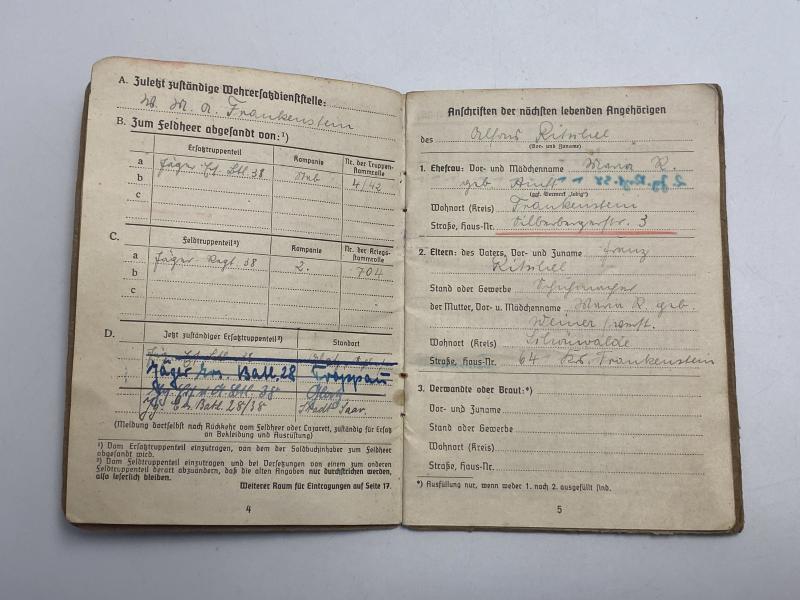 A. Zuletzt zuständige Wehrersatzdienststelle:
W. M. A. Frankenstein
B. Zum Feldheer abgesandt von:¹)
Ersatztruppenteil Kompanie Nr. der Truppenstammrolle
a Jäger Ers. Btl. 38 Stab 4/42
b
c
C.
Feldtruppenteil²) Kompanie Nr. der Kriegsstammrolle
a Jäger Regt. 38 2. 704
b
c
D. Jetzt zuständiger Ersatztruppenteil²) Standort
Jäger Ers. Batl. 28 Troppau
Jg. Ers. Batl. 28/38
(Meldung dortselbst nach Rückkehr vom Feldheer oder Lazarett, zuständig für Ersatz
an Bekleidung und Ausrüstung)
¹) Vom Ersatztruppenteil einzutragen, von dem der Soldbuchinhaber zum Feldheer
abgesandt wird.
²) Vom Feldtruppenteil einzutragen und bei Versetzungen von einem zum anderen
Feldtruppenteil derart abzuändern, daß die alten Angaben nur durchstrichen werden,
also leserlich bleiben.
Weiterer Raum für Eintragungen auf Seite 17.
4
Anschriften der nächsten lebenden Angehörigen
des Alfons
(Vor- und Zuname)
1. Ehefrau: Vor- und Mädchenname Maria R.
geb
(ggf. Vermerk „ledig")
Wohnort (Kreis) Frankenstein
Straße, Haus-Nr. Silberbergerstr. 3
2. Eltern: des Vaters, Vor- und Zuname Franz
Stand oder Gewerbe
der Mutter, Vor- u. Mädchenname Maria R. geb.
Weiner
Wohnort (Kreis) Schönwalde
Straße, Haus-Nr. 64 Krs. Frankenstein
3. Verwandte oder Braut:*)
Vor- und Zuname
Stand oder Gewerbe
Wohnort (Kreis)
Straße, Haus-Nr.
*) Ausfüllung nur, wenn weder 1. noch 2. ausgefüllt sind.
5